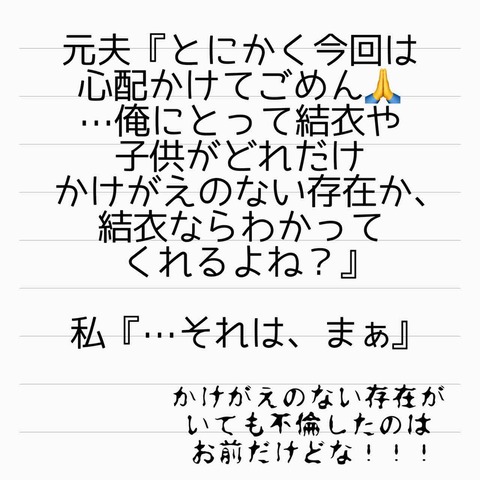 元夫『とにかく今回は
心配かけてごめん🙏
…俺にとって結衣や
子供がどれだけ
かけがえのない存在か、
結衣ならわかって
くれるよね？』
私『…それは、まぁ』
かけがえのない存在が
いても不倫したのは
お前だけどな！！！